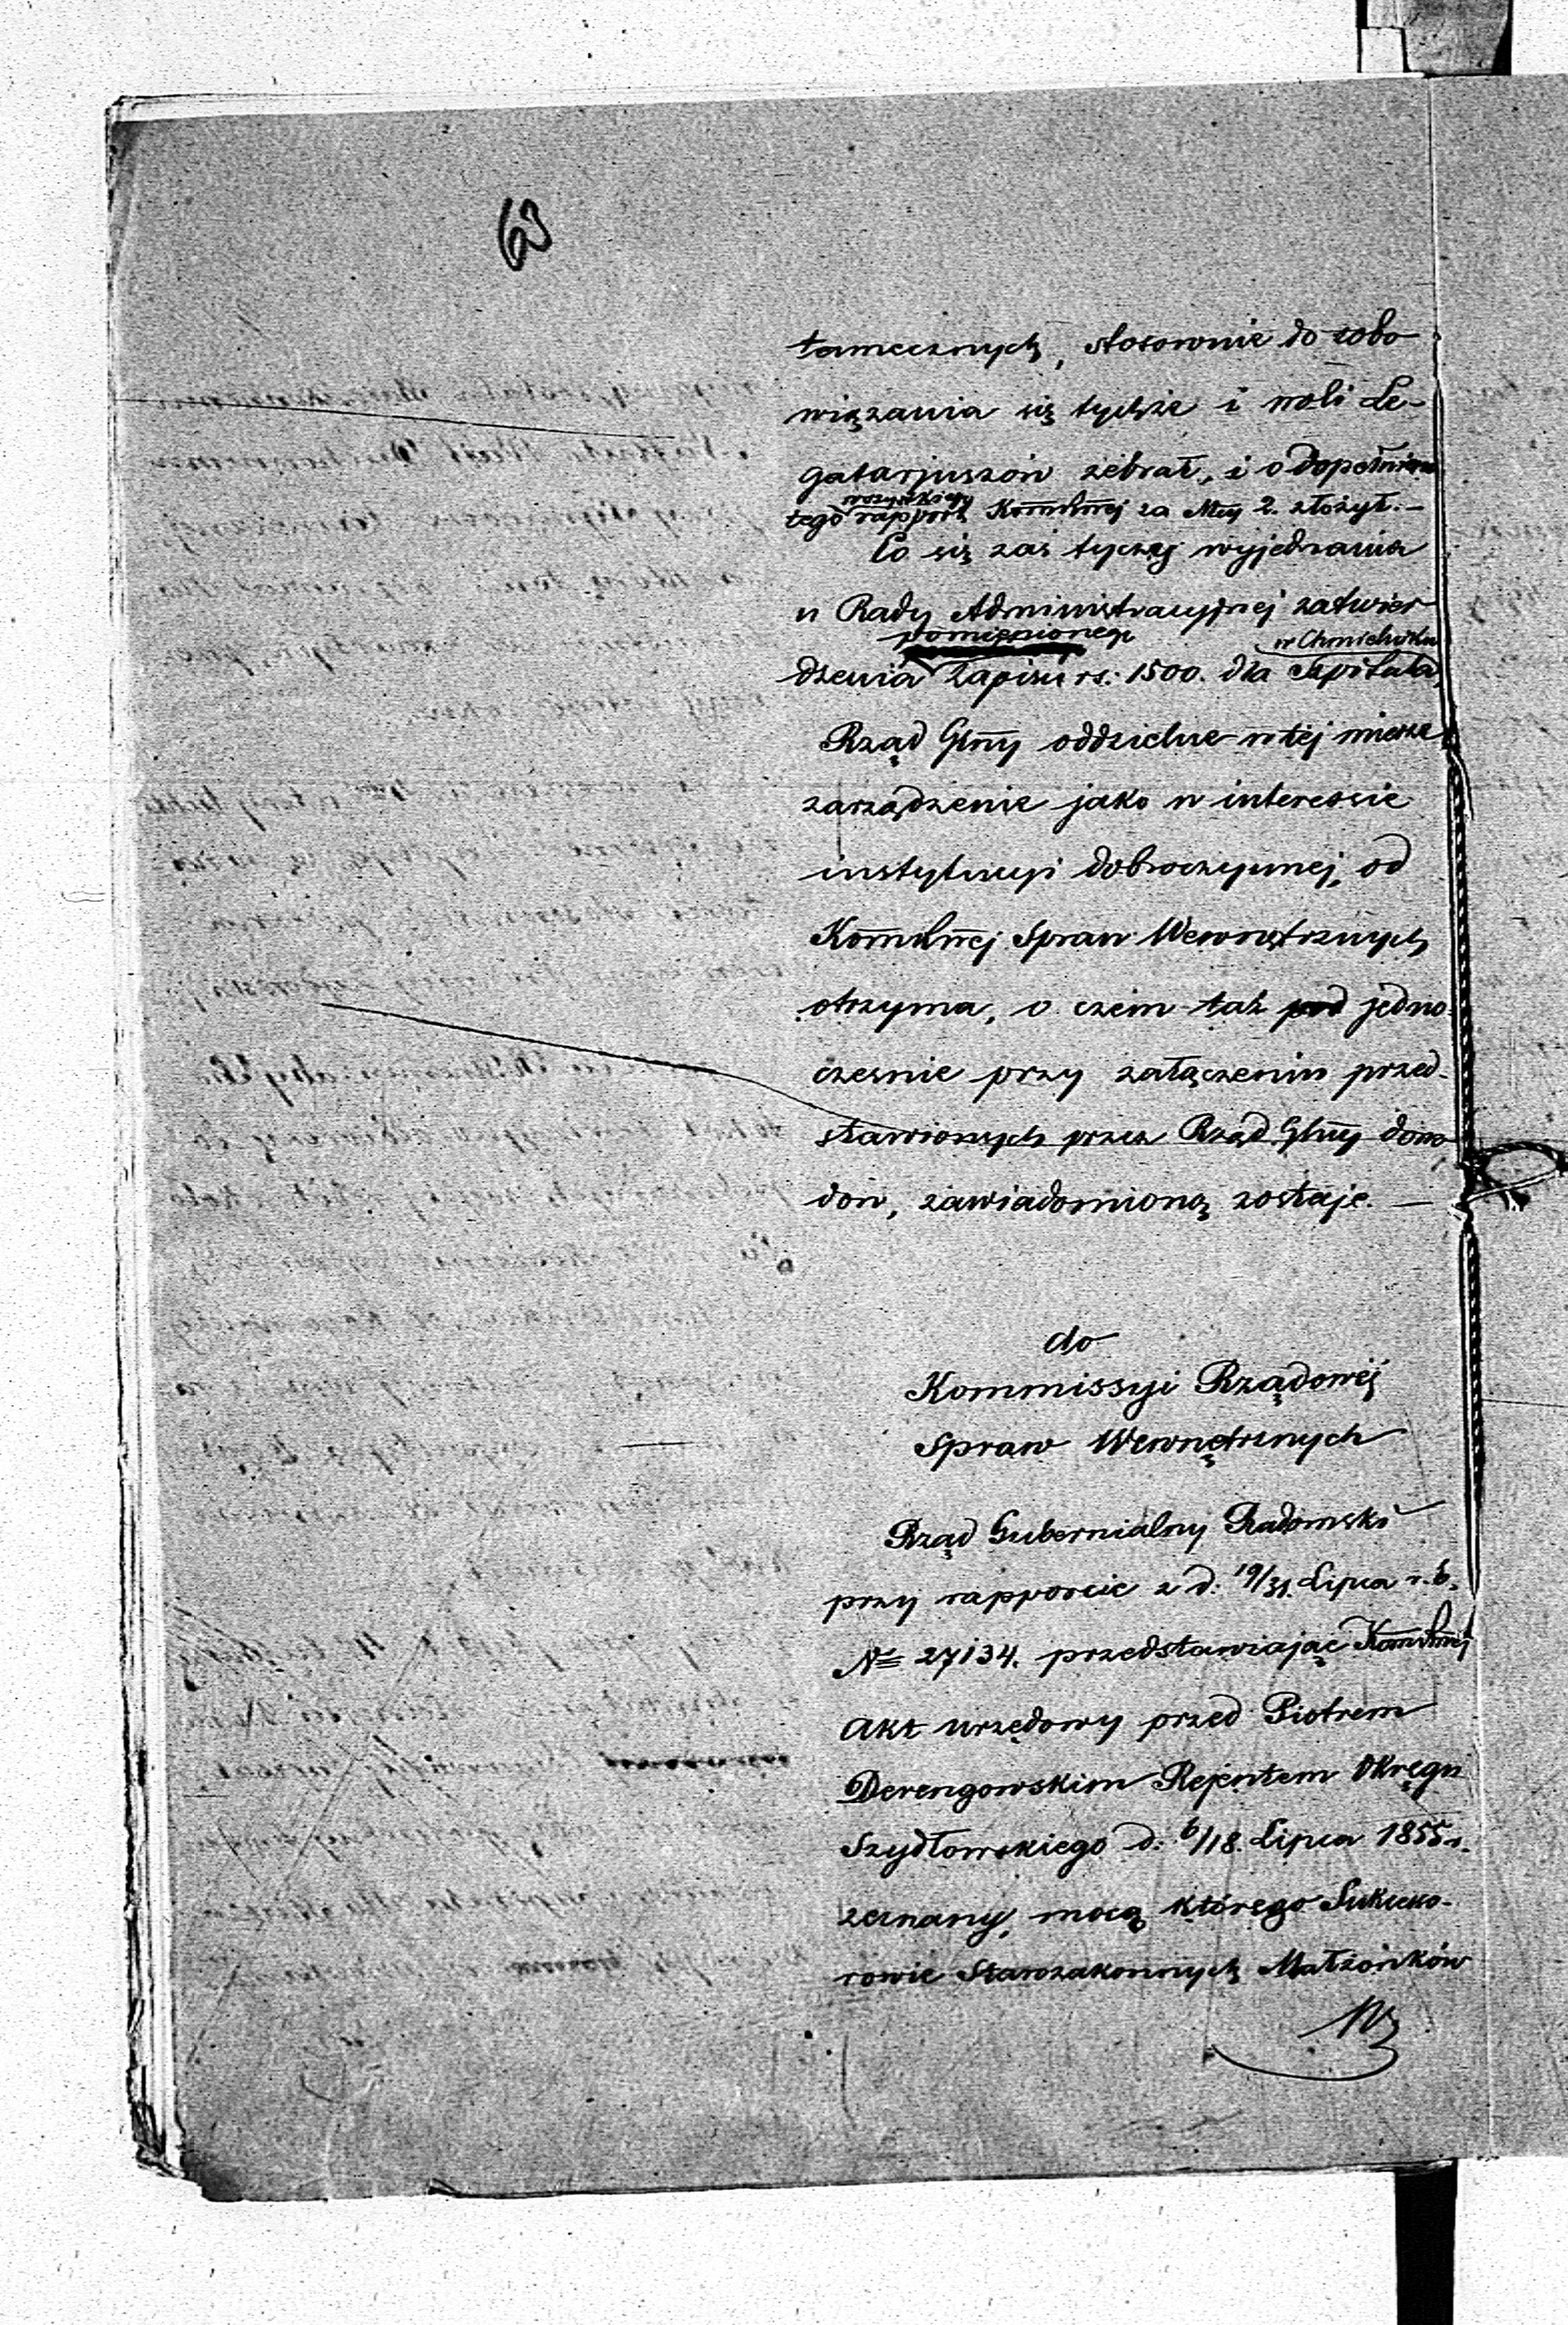 63
tamecznych, stosownie do zobo
wiązania się tychże i woli Le-
gatarjuszów zebrał, i o dopełnieniu
wszystkiego
tego rapport Kommlnej za Mcy 2. złożył. —
Co się zaś tyczy wyjednania
u Rady Administracyjnej zatwier
pomienionego w Chmielniku
dzenia Zapisu rs: 1500. dla Szpitala,
Rząd Glny oddzielne w tej mierze
zarządzenie jako w interessie
instytucyi dobroczynnej, od
Kommlnej Spraw Wewnętrznych
otrzyma, o czem taż pod jedno
cześnie przy załączeniu przed-
stawionych przez Rząd Glny dowo
dów, zawiadomioną zostaje. —
do
Kommissyi Rządowej
Spraw Wewnętrznych
Rząd Gubernialny Radomski
przy rapporcie z d: 19/31. Lipca r. b.
№ 27134. przedstawiając Kommlnej
Akt urzędowy przed Piotrem
Derengowskim Rejentem Okręgu
Szydłowskiego d: 6/18. Lipca 1855 r.
zeznany, mocą którego Sukcesso-
rowie Starozakonnych Małżonków